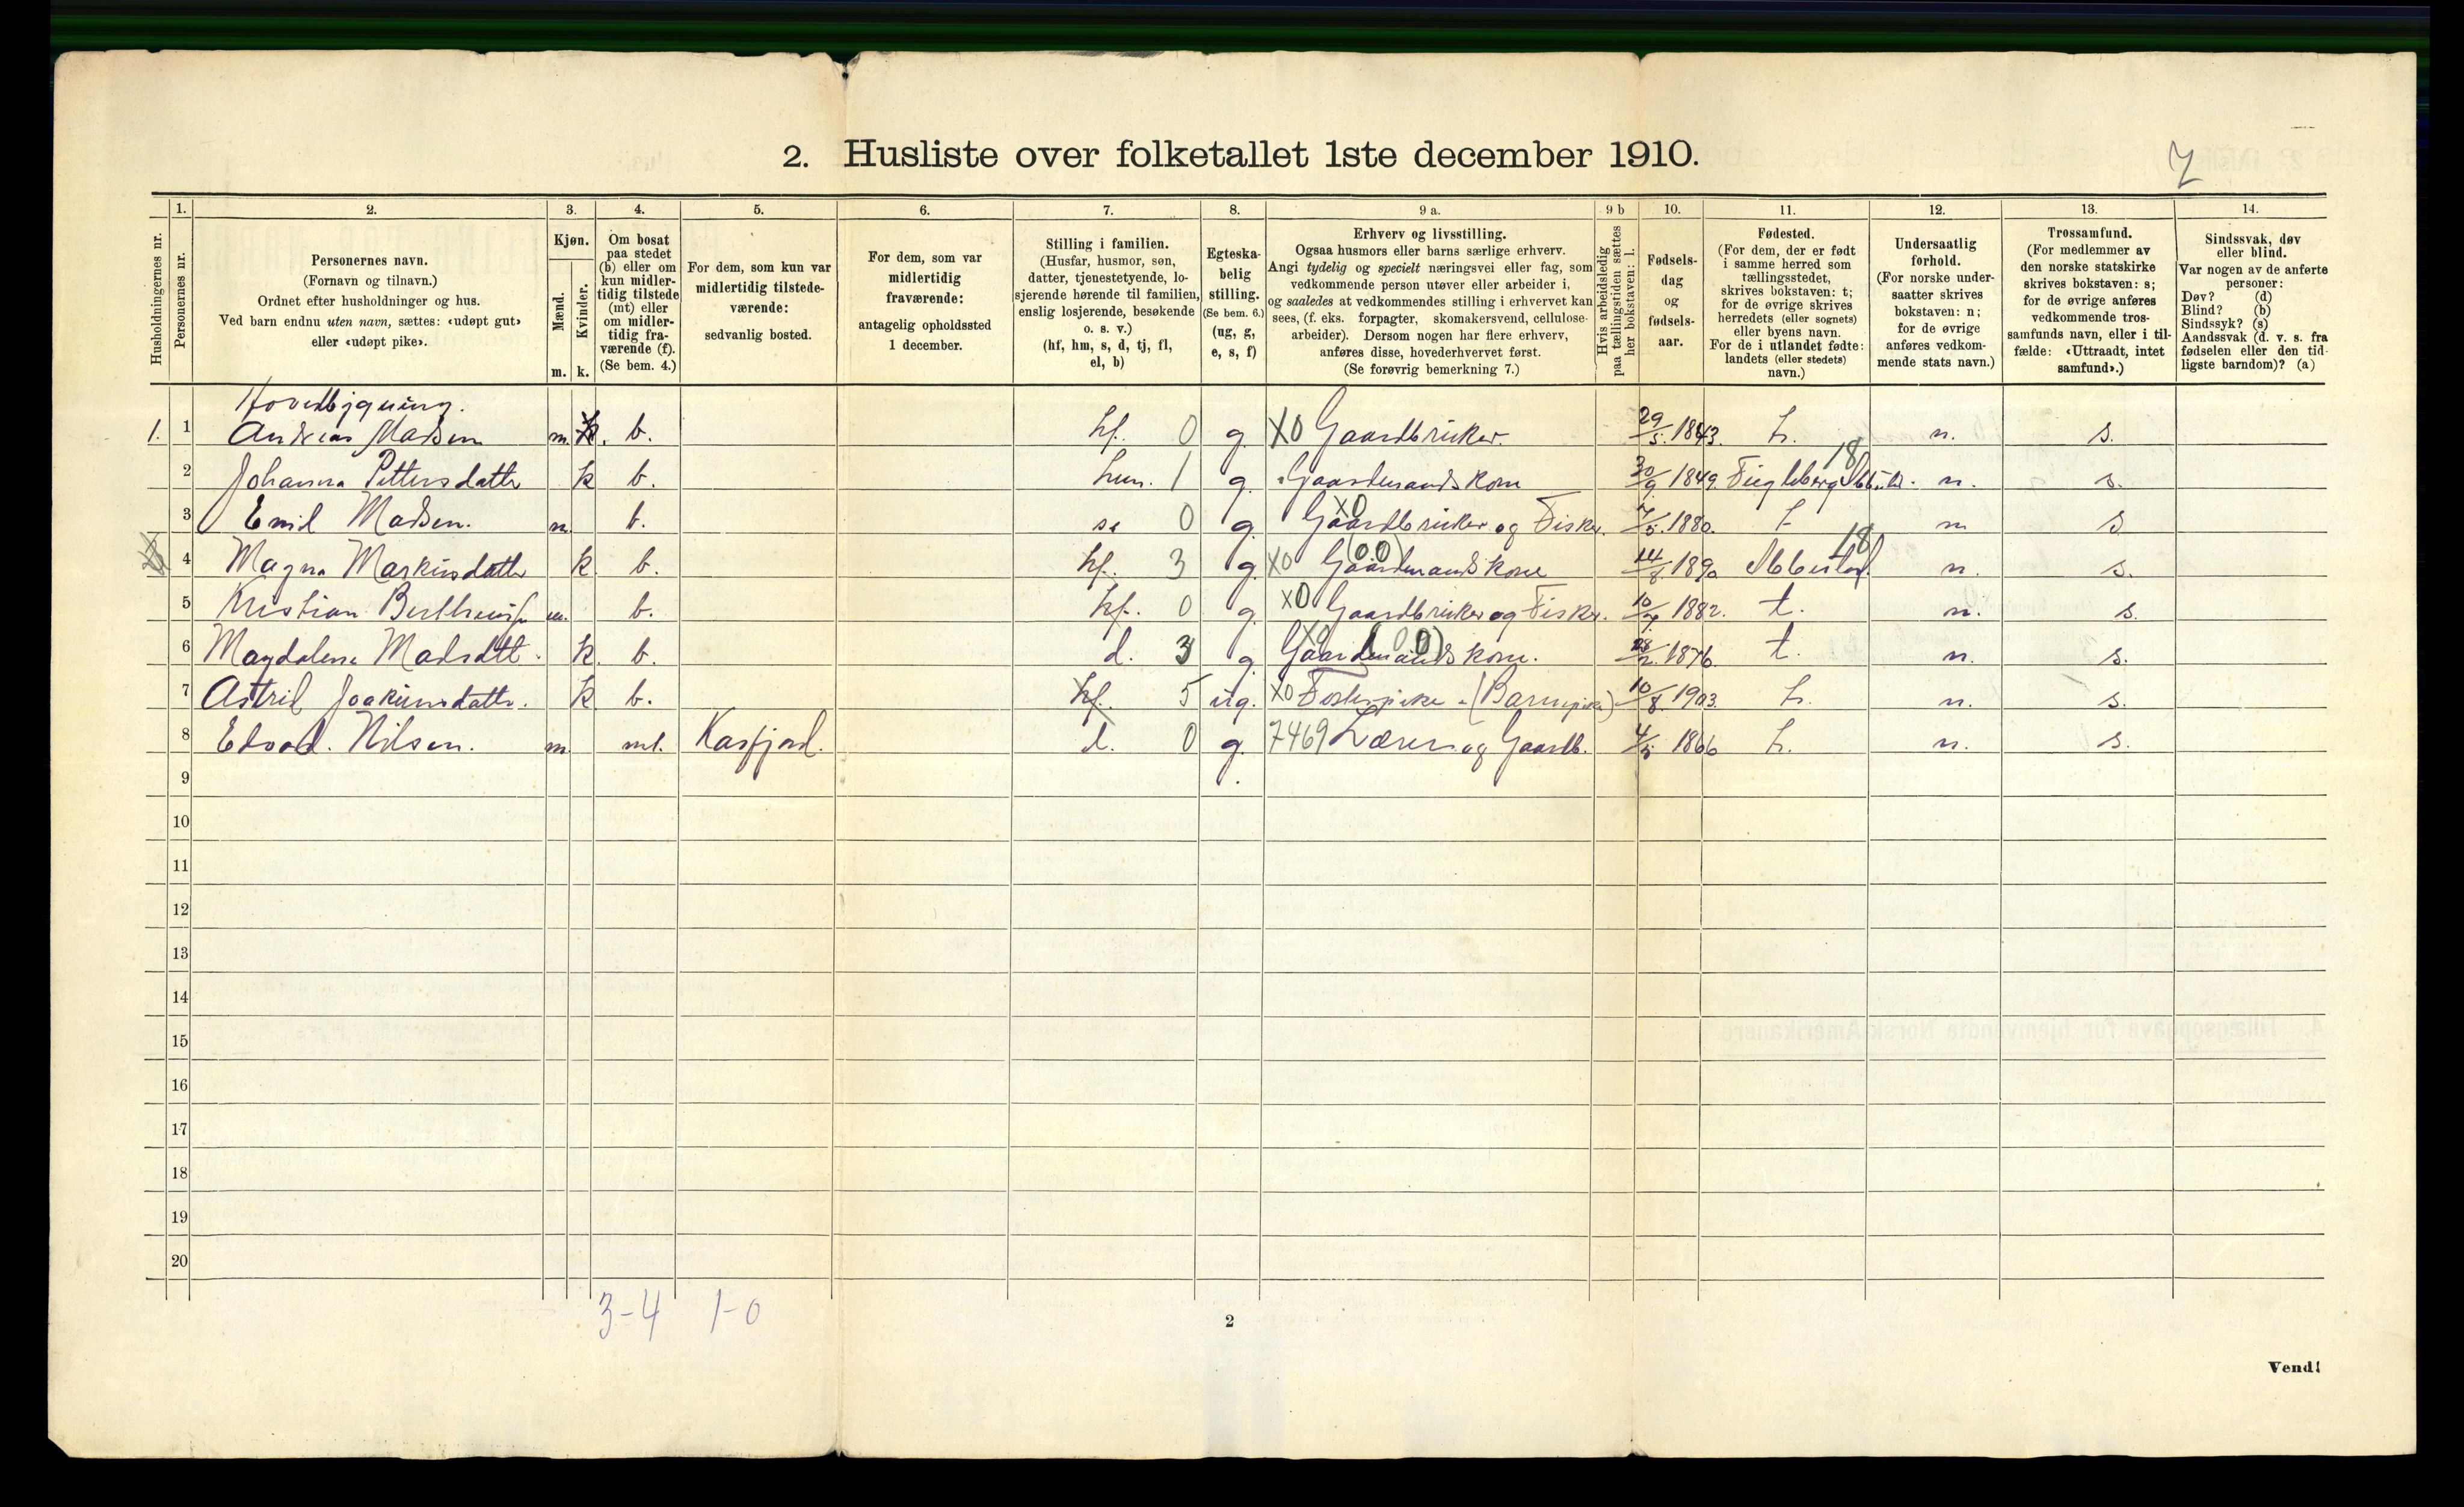 2. Husliste over folketallet 1ste december 1910.
7
Husholdningernes nr.
1.
Personernes nr.
2.
Personernes navn.
(Fornavn og tilnavn.)
Ordnet efter husholdninger og hus.
Ved barn endnu uten navn, sættes: «udøpt gut»
eller «udøpt pike».
3.
Kjøn.
Mænd.
Kvinder.
m. k.
4.
Om bosat
paa stedet
(b) eller om
kun midler-
tidig tilstede
(mt) eller
om midler-
tidig fra-
værende (f).
(Se bem. 4.)
5.
For dem, som kun var
midlertidig tilstede-
værende:
sedvanlig bosted.
6.
For dem, som var
midlertidig
fraværende:
antagelig opholdssted
1 december.
7.
Stilling i familien.
(Husfar, husmor, søn,
datter, tjenestetyende, lo-
sjerende hørende til familien,
enslig losjerende, besøkende
o. s. v.)
(hf, hm, s, d, tj, fl,
el, b)
8.
Egteska-
belig
stilling.
(Se bem. 6.)
(ug, g,
e, s, f)
9 a.
Erhverv og livsstilling.
Ogsaa husmors eller barns særlige erhverv.
Angi tydelig og specielt næringsvei eller fag, som
vedkommende person utøver eller arbeider i,
og saaledes at vedkommendes stilling i erhvervet kan
sees, (f. eks. forpagter, skomakersvend, cellulose-
arbeider). Dersom nogen har flere erhverv,
anføres disse, hovederhvervet først.
(Se forøvrig bemerkning 7.)
9 b
Hvis arbeidsledig
paa tællingstiden sættes
her bokstaven: l.
10.
Fødsels-
dag
og
fødsels-
aar.
11.
Fødested.
(For dem, der er født
i samme herred som
tællingsstedet,
skrives bokstaven: t;
for de øvrige skrives
herredets (eller sognets)
eller byens navn.
For de i utlandet fødte:
landets (eller stedets)
navn.)
12.
Undersaatlig
forhold.
(For norske under-
saatter skrives
bokstaven: n;
for de øvrige
anføres vedkom-
mende stats navn.)
13.
Trossamfund.
(For medlemmer av
den norske statskirke
skrives bokstaven: s;
for de øvrige anføres
vedkommende tros-
samfunds navn, eller i til-
fælde: «Uttraadt, intet
samfund».)
14.
Sindssvak, døv
eller blind.
Var nogen av de anførte
personer:
Døv? (d)
Blind? (b)
Sindssyk? (s)
Aandssvak (d. v. s. fra
fødselen eller den tid-
ligste barndom)? (a)
Hovedbygning.
1. 1 Andreas Madsen m. b. hf. 0 g. X0 Gaardbruker. 29/5. 1843. t. n. s.
2 Johanna Pettersdattr k b. hm. 1 g. Gaardmandskone 30/9 1849. 18 n. s.
3 Emil Madsen. m. b. s. 0 g. X0 Gaardbruker og Fisker. 7/5. 1880. t n s
4 Magna Markusdattr k. b. hf. 3 g. X0 (00) Gaardmandskone 14/8. 1890 18 n. s.
5 Kristian m. b. hf. 0 g. X0 Gaardbruker og Fisker. 1882. t. n. s.
6 Magdalena Madsdtt. k. b. d. 3 g. X0 (00) Gaardmandskone. 1876 t. n. s.
7 Astrid Joakimsdattr. k b. hf. 5 ug. X0 Fosterpike (Barnepike) 10/8. 1903. t. n. s.
8 Edvard. Nilsen. m. mt. Kasfjord. d. 0 g. 7469 Lærer og Gaardb. 4/5 1866 t. n. s.
9
10
11
12
13
14
15
16
17
18
19
20
3-4 1-0
2
Vend!